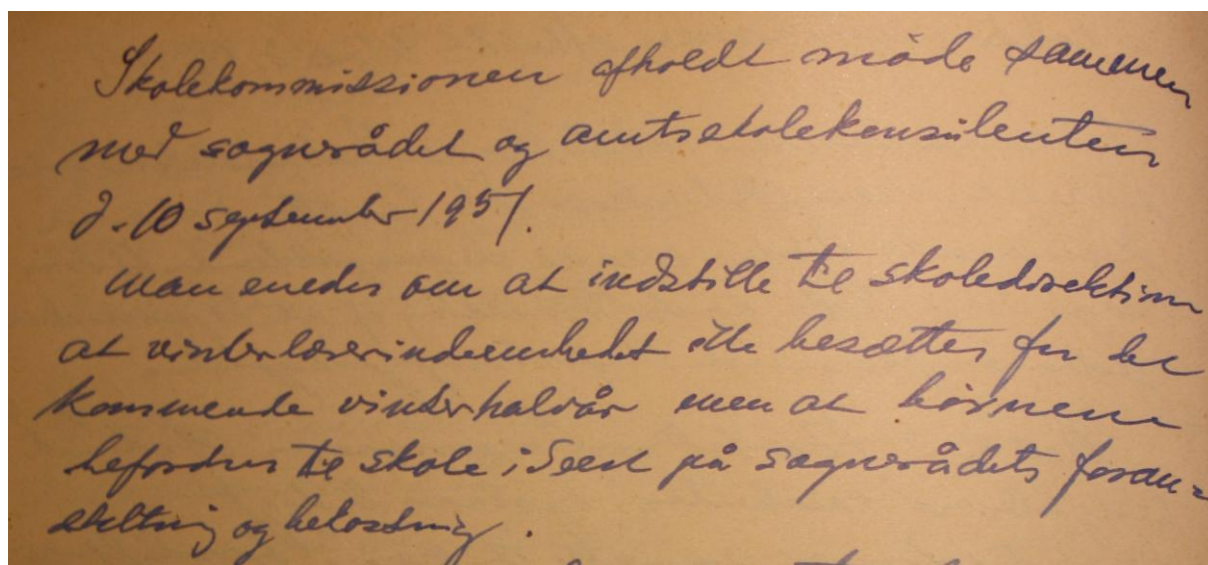 Skolekommissionen afholdt møde sammen
med sognerådet og amtsskolekonsulenten
d. 10 september 1951.
Man enedes om at indstille til skoledirektion
at vinterlærerindeembedet ikke besættes for det
kommende vinterhalvår men at børnene
befordres til skole i Seest på sognerådets foran=
staltning og bekostning.